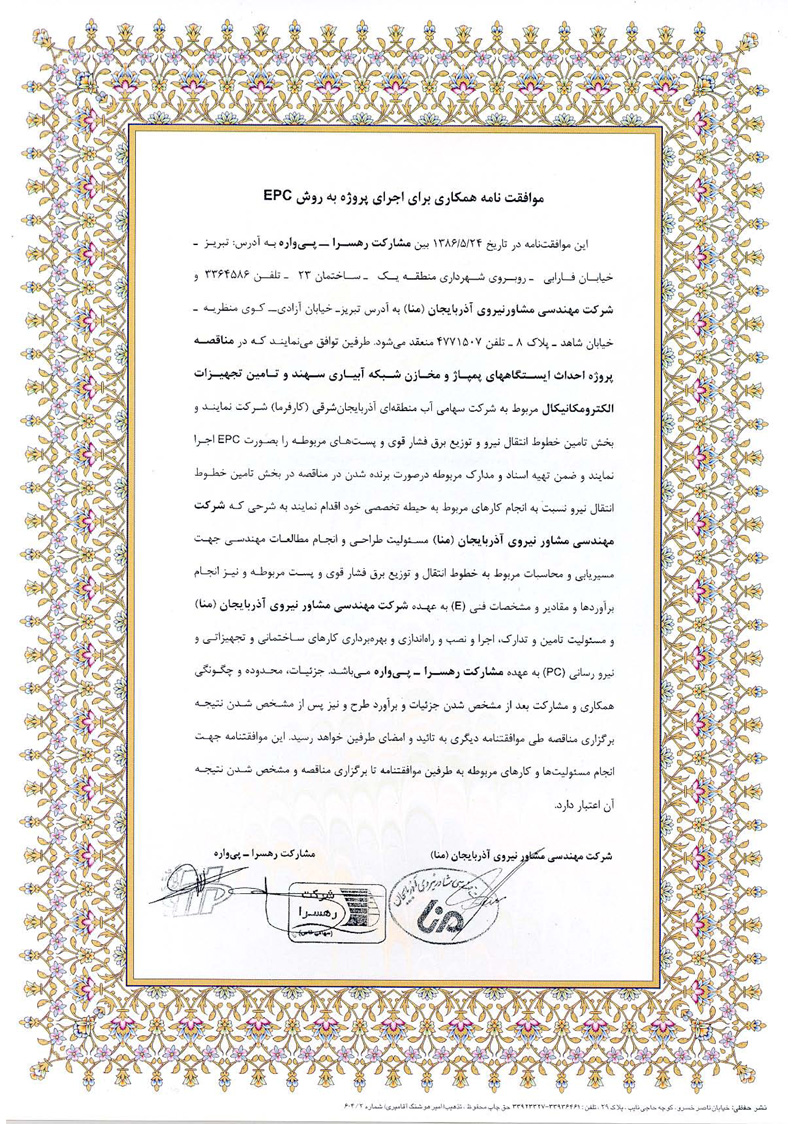 موافقت نامه همکاری برای اجرای پروژه به روش EPC
این موافقت‌نامه در تاریخ ۱۳۸۶/۵/۲۴ بین مشارکت رهسرا ـ پی‌واره به آدرس: تبریز ـ
خیابان فارابی ـ روبروی شهرداری منطقه یک ـ ساختمان ۲۳ ـ تلفن ۳۳۶۴۵۸۶ و
شرکت مهندسی مشاورنیروی آذربایجان (منا) به آدرس تبریزـ خیابان آزادی‌ـ کوی منظریه ـ
خیابان شاهد ـ پلاک ۸ ـ تلفن ۴۷۷۱۵۰۷ منعقد می‌شود. طرفین توافق می‌نمایند که در مناقصه
پروژه احداث ایستگاههای پمپاژ و مخازن شبکه آبیاری سهند و تامین تجهیزات
الکترومکانیکال مربوط به شرکت سهامی آب منطقه‌ای آذربایجان‌شرقی (کارفرما) شرکت نمایند و
بخش تامین خطوط انتقال نیرو و توزیع برق فشار قوی و پست‌های مربوطه را بصورت EPC اجرا
نمایند و ضمن تهیه اسناد و مدارک مربوطه درصورت برنده شدن در مناقصه در بخش تامین خطوط
انتقال نیرو نسبت به انجام کارهای مربوط به حیطه تخصصی خود اقدام نمایند به شرحی که شرکت
مهندسی مشاور نیروی آذربایجان (منا) مسئولیت طراحی و انجام مطالعات مهندسی جهت
مسیریابی و محاسبات مربوط به خطوط انتقال و توزیع برق فشار قوی و پست مربوطه و نیز انجام
برآوردها و مقادیر و مشخصات فنی (E) به عهده شرکت مهندسی مشاور نیروی آذربایجان (منا)
و مسئولیت تامین و تدارک، اجرا و نصب و راه‌اندازی و بهره‌برداری کارهای ساختمانی و تجهیزاتی و
نیرو رسانی (PC) به عهده مشارکت رهسرا ـ پی‌واره می‌باشد. جزئیات، محدوده و چگونگی
همکاری و مشارکت بعد از مشخص شدن جزئیات و برآورد طرح و نیز پس از مشخص شدن نتیجه
برگزاری مناقصه طی موافقتنامه دیگری به تائید و امضای طرفین خواهد رسید. این موافقتنامه جهت
انجام مسئولیت‌ها و کارهای مربوطه به طرفین موافقتنامه تا برگزاری مناقصه و مشخص شدن نتیجه
آن اعتبار دارد.
شرکت مهندسی مشاور نیروی آذربایجان (منا)
مشارکت رهسرا ـ پی‌واره
منا
شرکت
رهسرا
(سهامی خاص)
نشر حقانی: خیابان ناصر خسرو، کوچه حاجی نایب، پلاک ۲۹، تلفن: ۳۳۹۳۶۴۶۱-۳۳۹۲۳۳۲۷ حق چاپ محفوظ، تذهیب (امیر هوشنگ آقامیری) شماره ۶۰۴/۲